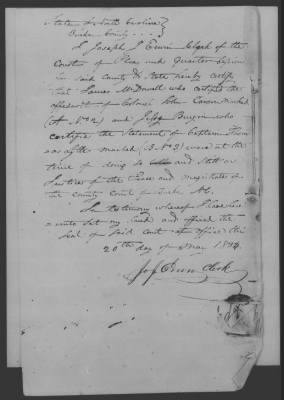 State of North Carolina }
Burke County . . . . }
I Joseph J Erwin clerk of the
Court of Pleas and Quarter Sessions
for said County & State hereby certify
that James McDowell who certifies the
affidavit of Colonel John Carson marked
(A No 2) and who
certifies the Statement of Captain
marked (B. No 3) were at the
time of doing so and still are
Justices of the Peace and magistrates in
the county court of Burke &c.
In testimony whereof I have here
unto set my hand and affixed the
Seal of said court at office this
20th day of May
J J Erwin Clerk